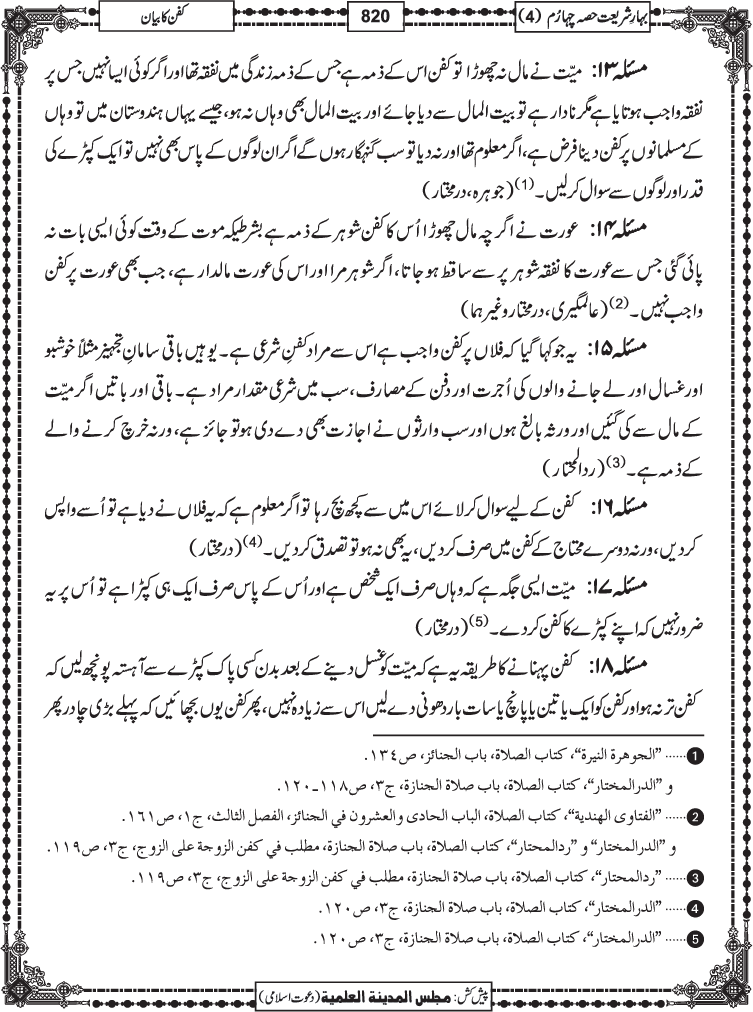 بہارِ شریعت حصہ چہارم (4)
820
کفن کا بیان
مسئلہ ۱۳: میّت نے مال نہ چھوڑا تو کفن اس کے ذمہ ہے جس کے ذمہ زندگی میں نفقہ تھا اور اگر کوئی ایسا نہیں جس پر
نفقہ واجب ہوتا یا ہے مگر نادار ہے تو بیت المال سے دیا جائے اور بیت المال بھی وہاں نہ ہو، جیسے یہاں ہندوستان میں تو وہاں
کے مسلمانوں پر کفن دینا فرض ہے، اگر معلوم تھا اور نہ دیا تو سب گنہگار ہوں گے اگر ان لوگوں کے پاس بھی نہیں تو ایک کپڑے کی
قدر اور لوگوں سے سوال کر لیں۔(1) (جوہرہ، درمختار)
مسئلہ ۱۴: عورت نے اگرچہ مال چھوڑا اُس کا کفن شوہر کے ذمہ ہے بشرطیکہ موت کے وقت کوئی ایسی بات نہ
پائی گئی جس سے عورت کا نفقہ شوہر پر سے ساقط ہو جاتا، اگر شوہر مرا اور اس کی عورت مالدار ہے، جب بھی عورت پر کفن
واجب نہیں۔(2) (عالمگیری، درمختار وغیرہما)
مسئلہ ۱۵: یہ جو کہا گیا کہ فلاں پر کفن واجب ہے اس سے مراد کفنِ شرعی ہے۔ یوہیں باقی سامانِ تجہیز مثلاً خوشبو
اور غسال اور لے جانے والوں کی اُجرت اور دفن کے مصارف، سب میں شرعی مقدار مراد ہے۔ باقی اور باتیں اگر میّت
کے مال سے کی گئیں اور ورثہ بالغ ہوں اور سب وارثوں نے اجازت بھی دے دی ہو تو جائز ہے، ورنہ خرچ کرنے والے
کے ذمہ ہے۔(3) (ردالمحتار)
مسئلہ ۱۶: کفن کے لیے سوال کر لائے اس میں سے کچھ بچ رہا تو اگر معلوم ہے کہ یہ فلاں نے دیا ہے تو اُسے واپس
کردیں، ورنہ دوسرے محتاج کے کفن میں صرف کردیں، یہ بھی نہ ہو تو تصدق کردیں۔(4) (درمختار)
مسئلہ ۱۷: میّت ایسی جگہ ہے کہ وہاں صرف ایک شخص ہے اور اُس کے پاس صرف ایک ہی کپڑا ہے تو اُس پر یہ
ضرور نہیں کہ اپنے کپڑے کا کفن کردے۔(5) (درمختار)
مسئلہ ۱۸: کفن پہنانے کا طریقہ یہ ہے کہ میّت کو غسل دینے کے بعد بدن کسی پاک کپڑے سے آہستہ پونچھ لیں کہ
کفن تر نہ ہو اور کفن کو ایک یا تین یا پانچ یا سات بار دھونی دے لیں اس سے زیادہ نہیں، پھر کفن یوں بچھائیں کہ پہلے بڑی چادر پھر
1 ...... "الجوهرة النيرة"، كتاب الصلاة، باب الجنائز، ص١٣٤.
و "الدرالمختار"، كتاب الصلاة، باب صلاة الجنازة، ج٣، ص١١٨ـ١٢٠.
2 ...... "الفتاوى الهندية"، كتاب الصلاة، الباب الحادى والعشرون في الجنائز، الفصل الثالث، ج١، ص١٦١.
و "الدرالمختار" و "ردالمحتار"، كتاب الصلاة، باب صلاة الجنازة، مطلب في كفن الزوجة على الزوج، ج٣، ص١١٩.
3 ...... "ردالمحتار"، كتاب الصلاة، باب صلاة الجنازة، مطلب في كفن الزوجة على الزوج، ج٣، ص١١٩.
4 ...... "الدرالمختار"، كتاب الصلاة، باب صلاة الجنازة، ج٣، ص١٢٠.
5 ...... "الدرالمختار"، كتاب الصلاة، باب صلاة الجنازة، ج٣، ص١٢٠.
پیش کش: مجلس المدينة العلمية (دعوت اسلامی)